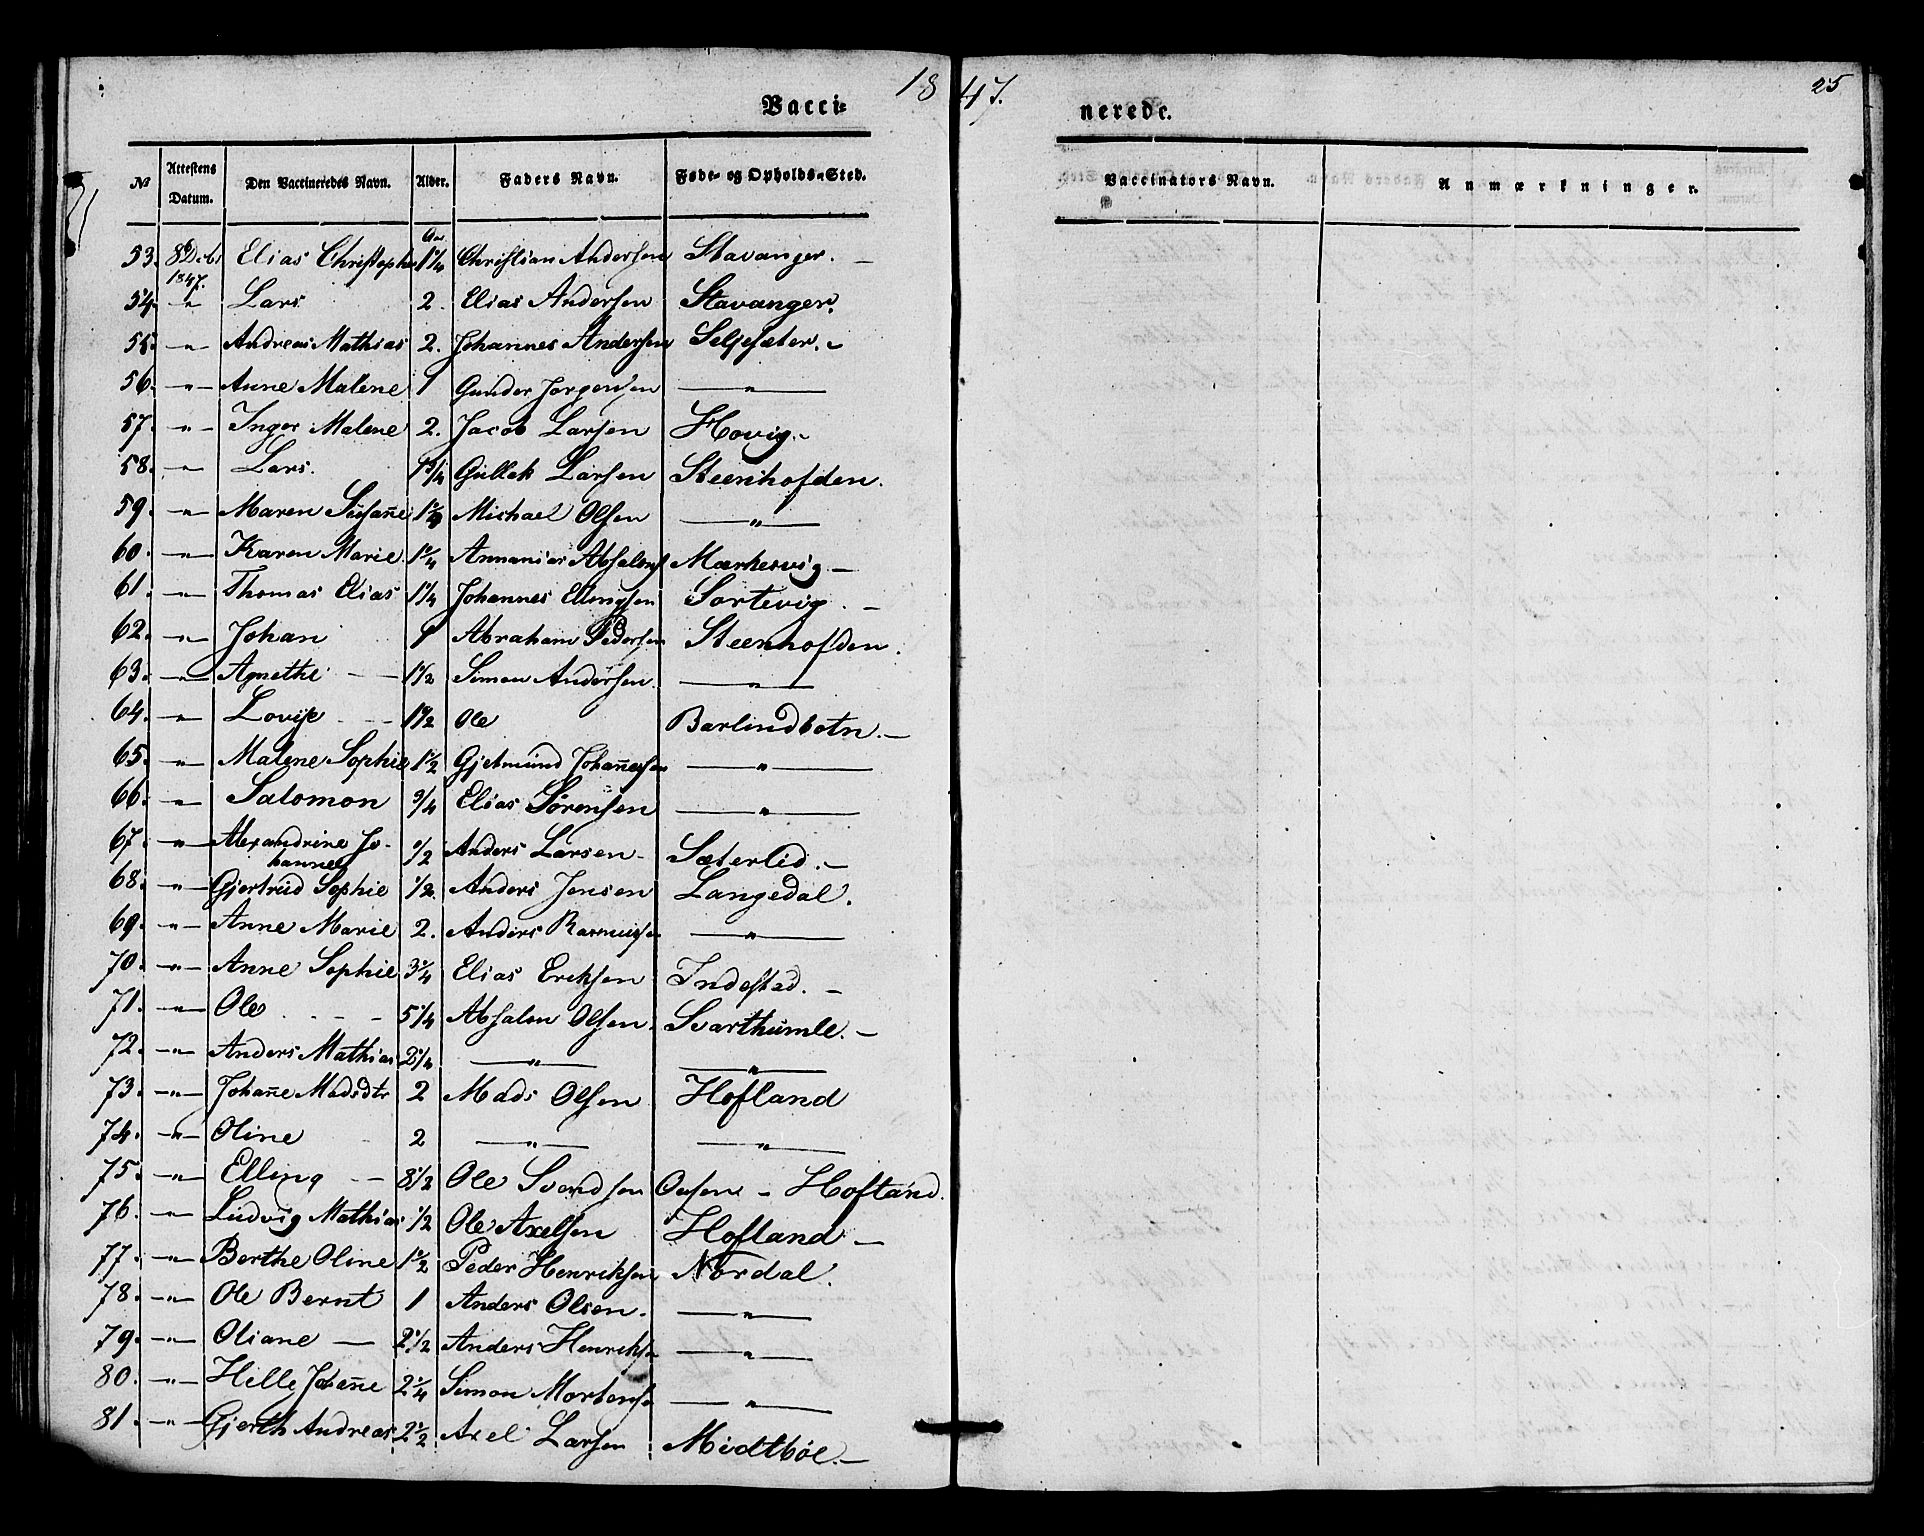 1847.
25
Vacci-nerede.
No | Attestens Datum. | Den Vaccineredes Navn. | Alder. | Faders Navn. | Føde- og Opholds-Sted. | Vaccinators Navn. | Anmærkninger.
53. 8 Decbr 1847. Elias Christopher 1 1/4 Christian Andersen Stavanger. —
54. " Lars 2. Elias Andersen Stavanger.
55. —"— Andreas Mathias 2. Johannes Andersen Seljesæter. -
56. —"— Anne Malene 1 Gunder Jørgensen —"—
57. —"— Inger Malene 2. Jacob Larsen Hovig. -
58. —"— Lars. 1 3/4 Gullak Larsen Steenhofden.
59. —"— Maren Susan̄e Michael Olsen —"—
60. —"— Karen Marie 1 1/4 Annanias Absalons Mærkesvig —
61. —"— Thomas Elias 1 1/4 Johannes Ellingsen Sortevig. —
62. —"— Johan 1 Abraham Pedersen Steenhofden.
63. —"— Agnethe — 1 1/2 Simon Andersen. —"—
64. —"— Lovise 1 1/2 Ole Barlindbotn. —
65. —"— Malene Sophie 1 1/2 Gjetmund Johan̄essen —"—
66. —"— Salomon 3/4 Elias Sørensen —"—
67. —"— Alexandrine Jo-
hanne 1/2 Anders Larsen - Sæterlid. —
68. —"— Gjertrud Sophie 1/2 Anders Jensen Langedal.
69. —"— Anne Marie 2. Anders Rasmussen —"—
70. —"— Anne Sophie 3 1/4 Elias Eriksen Indestad. —
71. —"— Ole 5 1/4 Absalon Olsen. Svarthumle. —
72. —"— Anders Mathias 2 1/4 —"— —"—
73. —"— Johan̄e Madsdtr 2 Mads Olsen Hofland
74. —"— Oline 2 —"— —"—
75. —"— Elling — 8 1/2 Ole Svendsen - Hofland.
76. —"— Ludvig Mathias 1/2 Ole Axelsen Hofland —
77. —"— Berthe Oline 1 1/2 Peder Henriksen Nordal.
78. —"— Ole Bernt 1 Anders Olsen. —"—
79. —"— Oliane — 2 1/2 Anders Henriksen —"—
80. —"— Hille Johan̄e 2 1/4 Simon Mortens —"—
81. —"— Gjerth Andreas 2 1/2 Axel Larsen Midtbøe. —